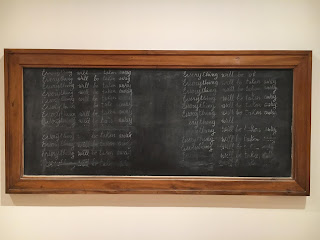 Everything will be taken away
Everything will be taken away
Everything will be taken away
Everything will be taken away
Everything will be taken away
Everything will be taken away
Everything will be taken away
Everything will be taken away
everything will be taken away
Everything will be taken away
Everything will be taken away
Everything will be taken away
Everything will be
Everything will be taken
Everything will be taken away
Everything will be taken away
Everything will be taken away
Everything will be taken away
everything will
Everything will be taken away
Everything will be taken away
Everything will be taken
will be taken away